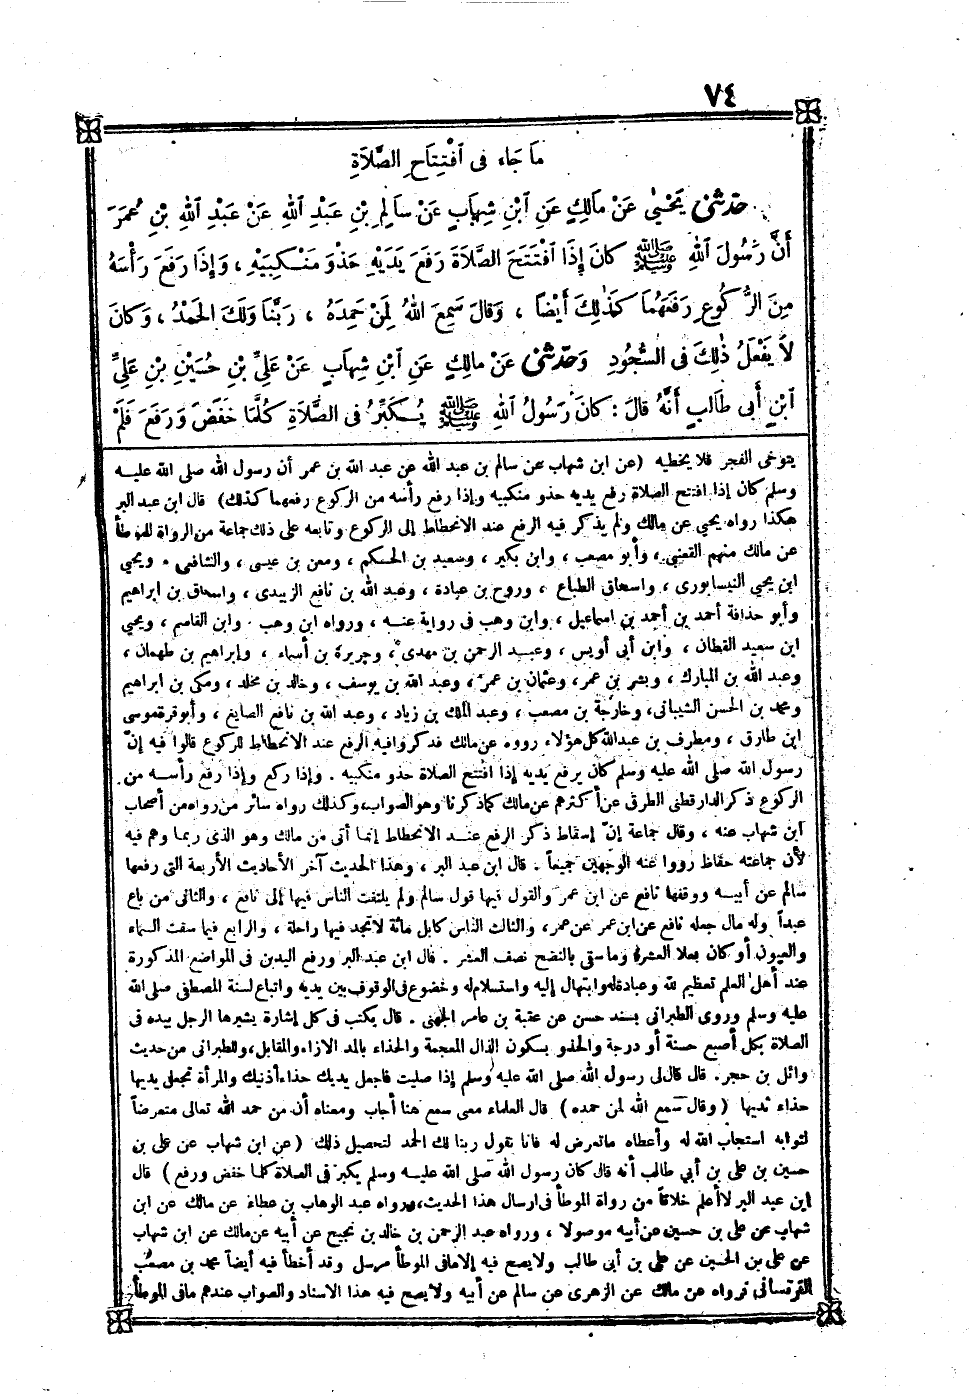 ٧٤
مَا جَاءَ فِى افْتِتَاحِ الصَّلَاةِ
حَدَّثَنِى يَحْيٰى عَنْ مَالِكٍ عَنِ ابْنِ شِهَابٍ عَنْ سَالِمِ بْنِ عَبْدِ اللهِ عَنْ عَبْدِ اللهِ بْنِ عُمَرَ
أَنَّ رَسُولَ اللهِ ﷺ كَانَ إِذَا افْتَتَحَ الصَّلَاةَ رَفَعَ يَدَيْهِ حَذْوَ مَنْكِبَيْهِ ، وَإِذَا رَفَعَ رَأْسَهُ
مِنَ الرُّكُوعِ رَفَعَهُمَا كَذٰلِكَ أَيْضًا ، وَقَالَ سَمِعَ اللهُ لِمَنْ حَمِدَهُ ، رَبَّنَا وَلَكَ الْحَمْدُ ، وَكَانَ
لَا يَفْعَلُ ذٰلِكَ فِى السُّجُودِ وَحَدَّثَنِى عَنْ مَالِكٍ عَنِ ابْنِ شِهَابٍ عَنْ عَلِىِّ بْنِ حُسَيْنِ بْنِ عَلِىِّ
ابْنِ أَبِى طَالِبٍ أَنَّهُ قَالَ : كَانَ رَسُولُ اللهِ ﷺ يُكَبِّرُ فِى الصَّلَاةِ كُلَّمَا خَفَضَ وَرَفَعَ فَلَمْ
يتوخى الفجر فلا يخطيه (عن ابن شهاب عن سالم بن عبد الله عن عبد الله بن عمر أن رسول الله صلى الله عليه
وسلم كان إذا افتتح الصلاة رفع يديه حذو منكبيه وإذا رفع رأسه من الركوع رفعهما كذلك) قال ابن عبد البر
هكذا رواه يحيى عن مالك ولم يذكر فيه الرفع عند الانحطاط إلى الركوع وتابعه على ذلك جماعة من الرواة للموطأ
عن مالك منهم القعنبى ، وأبو مصعب ، وابن بكير ، وسعيد بن الحكم ، ومعن بن عيسى ، والشافعى ، ويحيى
ابن يحيى النيسابورى ، واسحاق الطباع ، وروح بن عبادة ، وعبد الله بن نافع الزبيدى ، واسحاق بن ابراهيم
وأبو حذافة أحمد بن أحمد بن اسماعيل ، وابن وهب فى رواية عنه ، ورواه ابن وهب . وابن القاسم ، ويحيى
ابن سعيد القطان ، وابن أبى أويس ، وعبد الرحمن بن مهدى ، وجويرة بن أسماء ، وإبراهيم بن طهمان ،
وعبد الله بن المبارك ، وبشر بن عمر ، وعثمان بن عمر ، وعبد الله بن يوسف ، وخالد بن مخلد ، ومكى بن ابراهيم
ومحمد بن الحسن الشيبانى، وخارجة بن مصعب ، وعبد الملك بن زياد ، وعبد الله بن نافع الصايغ ، وأبو قرة موسى
ابن طارق ، ومطرف بن عبد الله كل هؤلاء رووه عن مالك فذكروا فيه الرفع عند الانحطاط للركوع قالوا فيه إنّ
رسول الله صلى الله عليه وسلم كان يرفع يديه إذا افتتح الصلاة حذو منكبيه . وإذا ركع وإذا رفع رأسه من
الركوع ذكر الدارقطنى الطرق عن أكثرهم عن مالك كما ذكرنا وهو الصواب، وكذلك رواه سائر من رواه من أصحاب
ابن شهاب عنه ، وقال جماعة إنّ إسقاط ذكر الرفع عند الانحطاط إنما أتى من مالك وهو الذى ربما وهم فيه
لأن جماعته حفاظ رووا عنه الوجهين جميعاً . قال ابن عبد البر ، وهذا الحديث آخر الأحاديث الأربعة التى رفعها
سالم عن أبيه ووقفها نافع عن ابن عمر والقول فيها قول سالم ولم يلتفت الناس فيها إلى نافع ، والثانى من باع
عبداً وله مال جعله نافع عن ابن عمر عن عمر، والثالث الناس كابل مائة لا تجد فيها راحلة ، والرابع فيما سقت السماء
والعيون أو كان بعلا العشر وما سقى بالنضح نصف العشر . قال ابن عبد البر ورفع اليدين فى المواضع المذكورة
عند أهل العلم تعظيم لله وعبادة له وابتهال إليه واستسلام له وخضوع فى الوقوف بين يديه واتباع لسنة المصطفى صلى الله
عليه وسلم وروى الطبرانى بسند حسن عن عقبة بن عامر الجهنى . قال يكتب فى كل إشارة يشيرها الرجل بيده فى
الصلاة بكل أصبع حسنة أو درجة والحذو بسكون الذال المعجمة والحذاء بالمد الازاء والمقابل، وللطبرانى من حديث
وائل بن حجر. قال قال لى رسول الله صلى الله عليه وسلم إذا صليت فاجعل يديك حذاء أذنيك والمرأة تجعل يديها
حذاء ثدييها (وقال سمع الله لمن حمده) قال العلماء معنى سمع هنا أجاب ومعناه أن من حمد الله تعالى متعرضاً
لثوابه استجاب الله له وأعطاه ما تعرض له فانا نقول ربنا لك الحمد لتحصيل ذلك (عن ابن شهاب عن على بن
حسين بن على بن أبي طالب أنه قال كان رسول الله صلى الله عليه وسلم يكبر فى الصلاة كلما خفض ورفع) قال
ابن عبد البر لا أعلم خلافاً من رواة الموطأ فى ارسال هذا الحديث، ورواه عبد الوهاب بن عطاء عن مالك عن ابن
شهاب عن على بن حسين عن أبيه موصولا ، ورواه عبد الرحمن بن خالد بن نجيح عن أبيه عن مالك عن ابن شهاب
عن على بن الحسين عن على بن أبى طالب ولا يصح فيه إلا ما فى الموطأ مرسل وقد أخطأ فيه أيضاً محمد بن مصعب
القرقسانى فرواه عن مالك عن الزهرى عن سالم عن أبيه ولا يصح فيه هذا الاسناد والصواب عندهم ما فى الموطأ